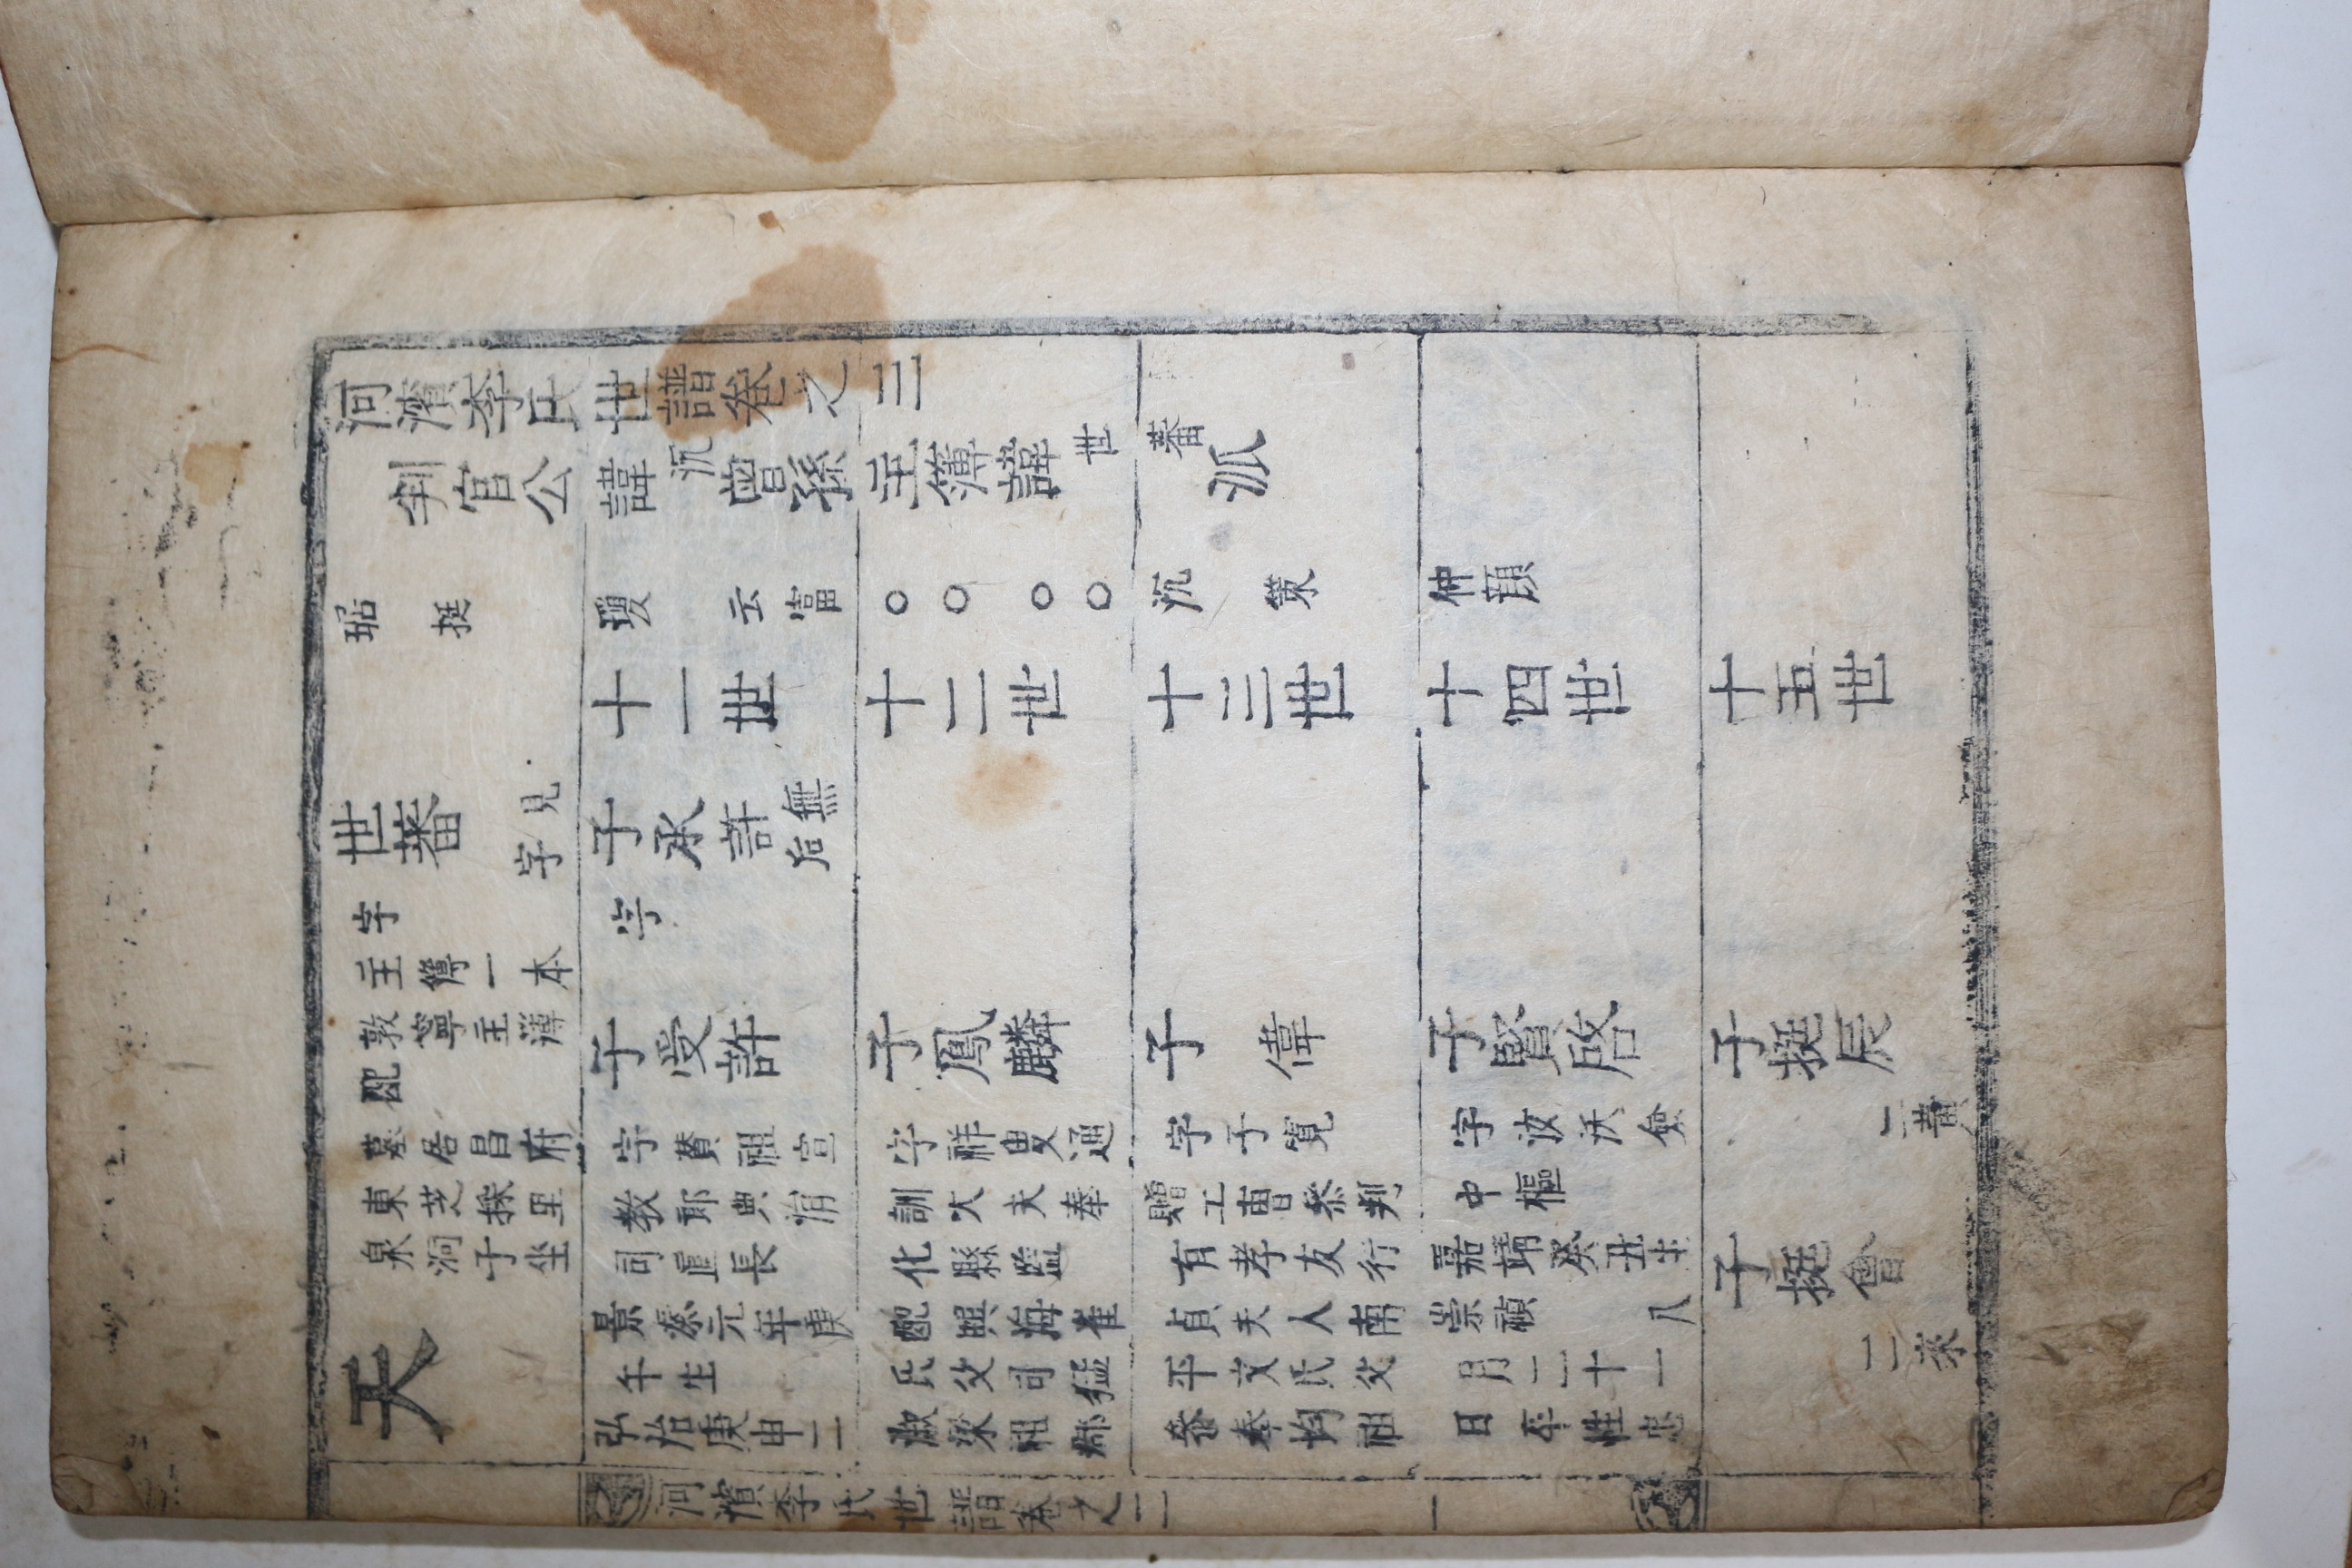 河濱李氏世譜卷之三
判官公諱沉曾孫主簿諱世蕃派
琚 瓊 云富 ○○○○ 沉 策 仲顔
挺
十一世
十二世
十三世
十四世
十五世
世蕃 見字
字
主簿一本
敦寧主簿
配
墓居昌府
東芝採里
泉洞子坐
天
子承許 無后
字
子受許
字賛祖宣
教郎典涓
司直長
景泰元年庚
午生
弘治庚申二
子鳳麟
字祥叟通
訓大夫奉
化縣監
配興海崔
氏父司猛
淑梁祖郡
子偉
字子寬
贈工曹參判
有孝友行
貞夫人南
平文氏父
參奉均祖
子賢啓
字汝沃僉
中樞
嘉靖癸丑生
崇禎 八
月二十一
日卒性忠
子挺辰
二黃
子挺會
二來
河濱李氏世譜卷之二 一